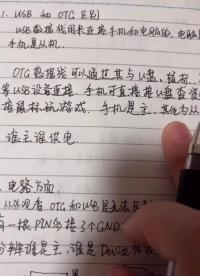 1. USB 和 OTG 区别
USB 数据线用来连接手机和电脑端,电脑是
手机是从机.
OTG 数据线可以通过其与U盘、鼠标、
等USB设备连接.手机可直接接U盘
接鼠标玩游戏.手机是主.其他为从
谁主谁供电.
、电路方面.
从外观看 OTG 和USB是无法区
有一根PIN多接了个GND
分辨谁是主,谁是Device外设